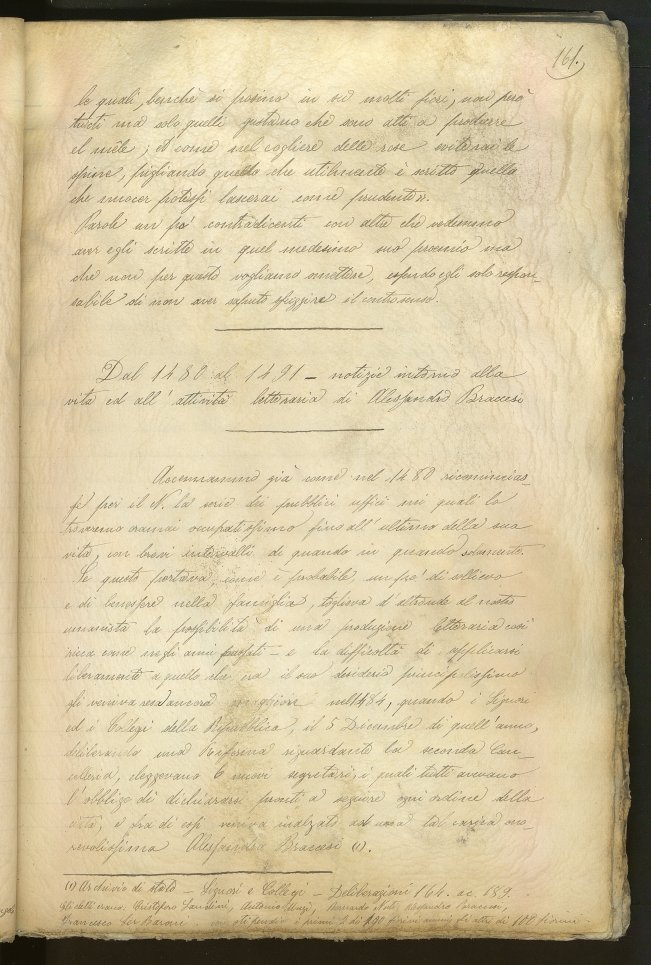 161.
le quali, benchè si posino in su molti fiori, non però
tutti ma solo quelli gustano che sono atti a produrre
el miele; et come nel cogliere delle rose eviterai le
spine, pigliando quello che utilmente è scritto quello
che nuocer potessi lascerai come prudente».
Parole un po' contradicenti con altre che vedemmo
aver egli scritte in quel medesimo suo proemio ma
che non per questo vogliamo omettere, essendo egli solo respon-
sabile di non aver saputo sfuggire il controsenso.
Dal 1480 al 1491 – notizie intorno alla
vita ed all'attività letteraria di Alessandro Braccesi
Accennammo già come nel 1480 ricomincias-
se per il N. la serie dei pubblici uffici nei quali lo
troveremo oramai occupatissimo fino all'ultimo della sua
vita, con brevi intervalli di quando in quando solamente.
Se questo portava, come è probabile, un po' di sollievo
e di benessere nella famiglia, toglieva d'altronde al nostro
umanista la possibilità di una produzione letteraria così
ricca come negli anni passati – e la difficoltà di applicarsi
liberamente a quello che era il suo desiderio principalissimo
gli veniva resa ancora maggiore nel 1484, quando i Signori
ed i Collegi della Repubblica, il 5 Dicembre di quell'anno,
deliberando una Riforma riguardante la seconda Can-
celleria, eleggevano 6 nuovi segretari, i quali tutti avevano
l'obbligo di dichiararsi pronti a seguire ogni ordine della
città, e fra di essi veniva inalzato ad una tal carica ono-
revolissima Alessandro Braccesi (1).
(1) Archivio di stato – Signori e Collegi – Deliberazioni 164. ac. 189
Gli eletti erano: Cristoforo Landini, Antonio Muzi, Bernardo Nuti, Alessandro Braccesi,
Francesco Ser Baroni con stipendio i primi di fiorini annui gli altri di 100 fiorini.